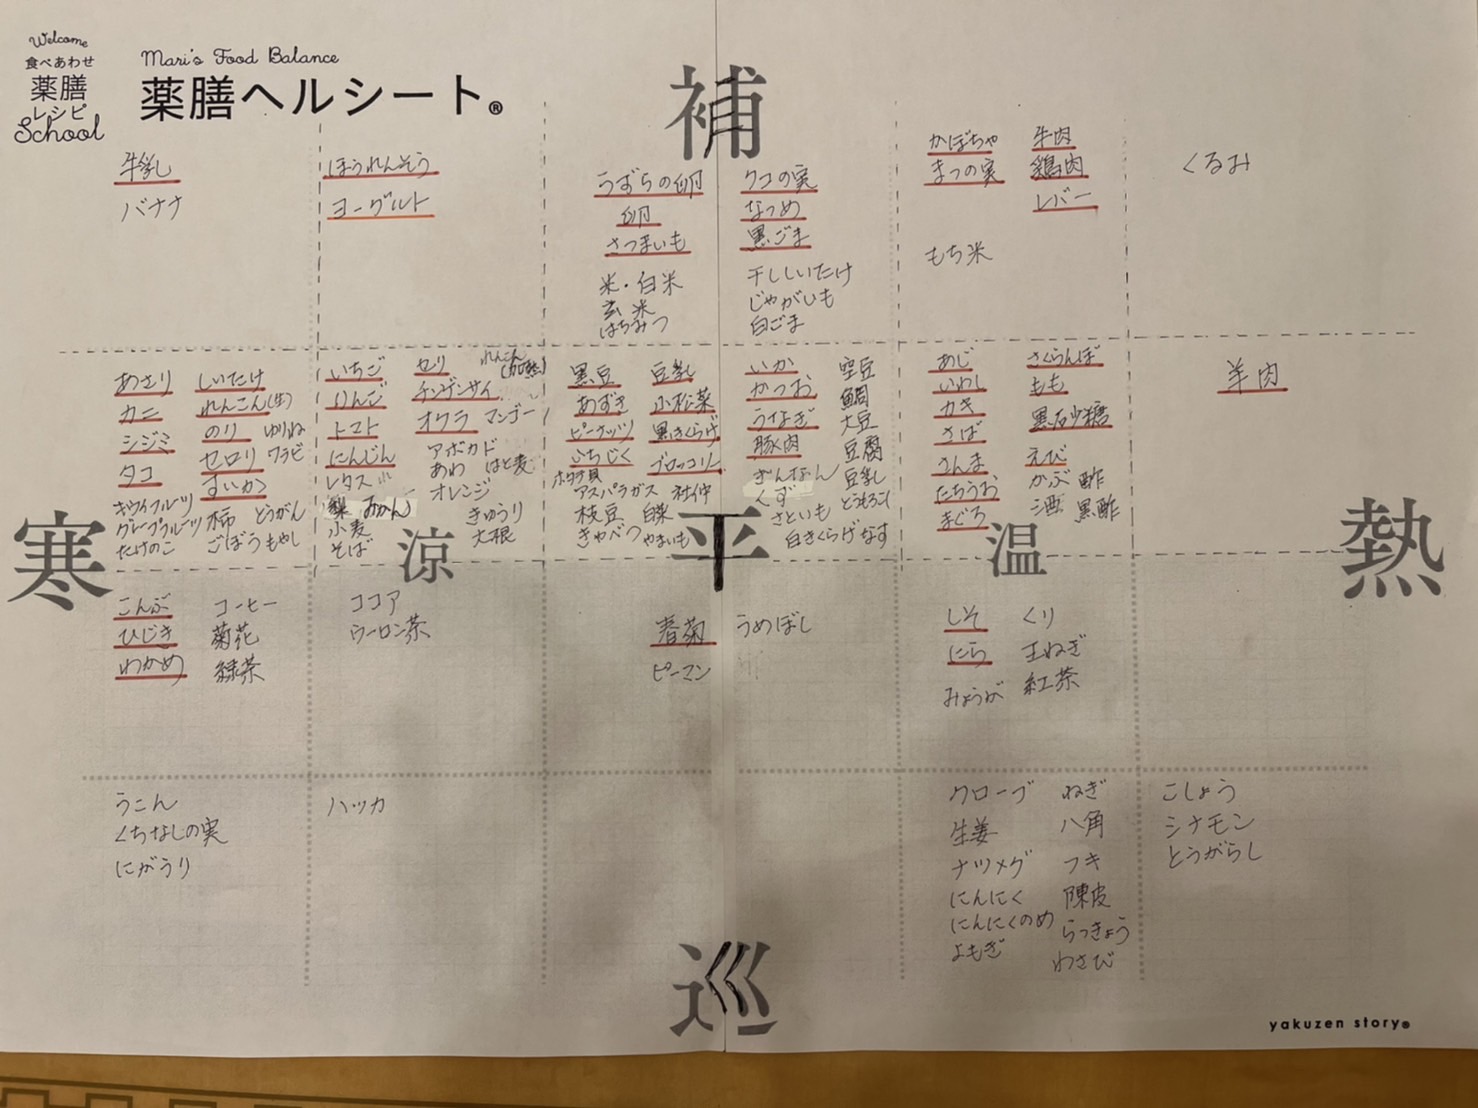 Welcome
食べあわせ
薬膳
レシピ
School
Mari's Food Balance
薬膳ヘルシート®
補
牛乳
バナナ
ほうれんそう
ヨーグルト
うずらの卵
卵
さつまいも
米・白米
玄米
はちみつ
クコの実
なつめ
黒ごま
干ししいたけ
じゃがいも
白ごま
かぼちゃ
まつの実
もち米
牛肉
鶏肉
レバー
くるみ
あさり
カニ
シジミ
タコ
キウイフルーツ
グレープフルーツ
たけのこ
しいたけ
れんこん(生)
のり ゆりね
セロリ ワラビ
すいか
柿 とうがん
ごぼう もやし
いちご
りんご
トマト
にんじん
レタス
梨 みかん
小麦
そば
セリ れんこん(加熱)
チンゲンサイ
オクラ マンゴー
アボカド
あわ はと麦
オレンジ
きゅうり
大根
黒豆
あずき
ピーナッツ
いちじく
ホタテ貝
アスパラガス
枝豆 白菜
きゃべつ やまいも
豆乳
小松菜
黒きくらげ
ブロッコリー
杜仲
いか
かつお
うなぎ
豚肉
ぎんなん
くず
さといも
白きくらげ なす
空豆
鯛
大豆
豆腐
豆乳
とうもろこし
あじ
いわし
カキ
さば
さんま
たちうお
まぐろ
さくらんぼ
もも
黒砂糖
えび
かぶ 酢
酒 黒酢
羊肉
寒
涼
平
温
熱
こんぶ
ひじき
わかめ
コーヒー
菊花
緑茶
ココア
ウーロン茶
春菊
ピーマン
うめぼし
しそ
にら
みょうが
くり
玉ねぎ
紅茶
うこん
くちなしの実
にがうり
ハッカ
クローブ
生姜
ナツメグ
にんにく
にんにくのめ
よもぎ
ねぎ
八角
フキ
陳皮
らっきょう
わさび
こしょう
シナモン
とうがらし
巡
yakuzen story®